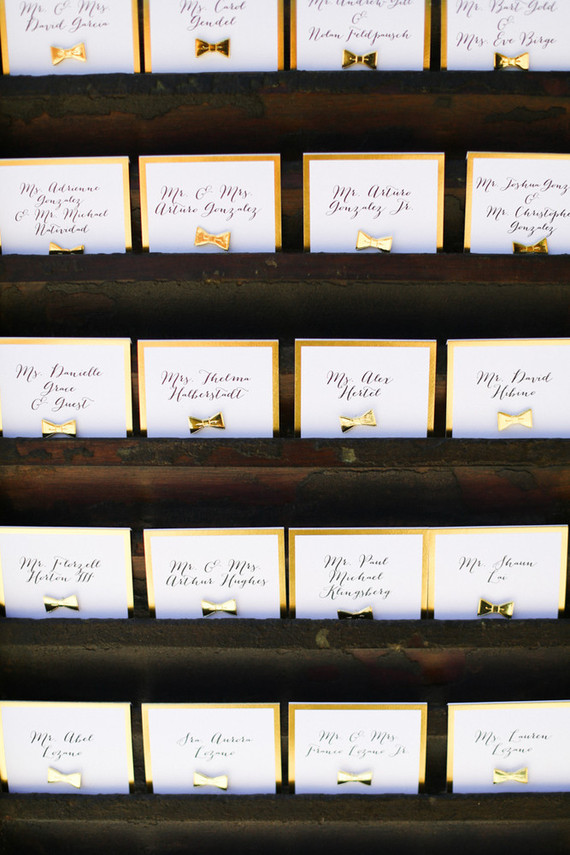 Mr. & Mrs.
David Garcia
Ms. Carol
Gendel
Mr. Andrew Gill
&
Nolan Feldpausch
Mr. Bart Gold
&
Mrs. Eve Birge
Ms. Adrienne
Gonzalez
& Mr. Michael
Natividad
Mr. & Mrs.
Arturo Gonzalez
Mr. Arturo
Gonzalez Jr.
Mr. Joshua Gonz
&
Mr. Christophe
Gonzalez
Ms. Danielle
Grace
& Guest
Mrs. Thelma
Halberstadt
Ms. Alex
Hertel
Mr. David
Hibino
Mr. Florzell
Horton III
Mr. & Mrs.
Arthur Hughes
Mr. Paul
Michael
Klingsberg
Mr. Shaun
Lee
Mr. Abel
Lozano
Sra. Aurora
Lozano
Mr. & Mrs.
Franco Lozano Jr.
Ms. Lauren
Lozano